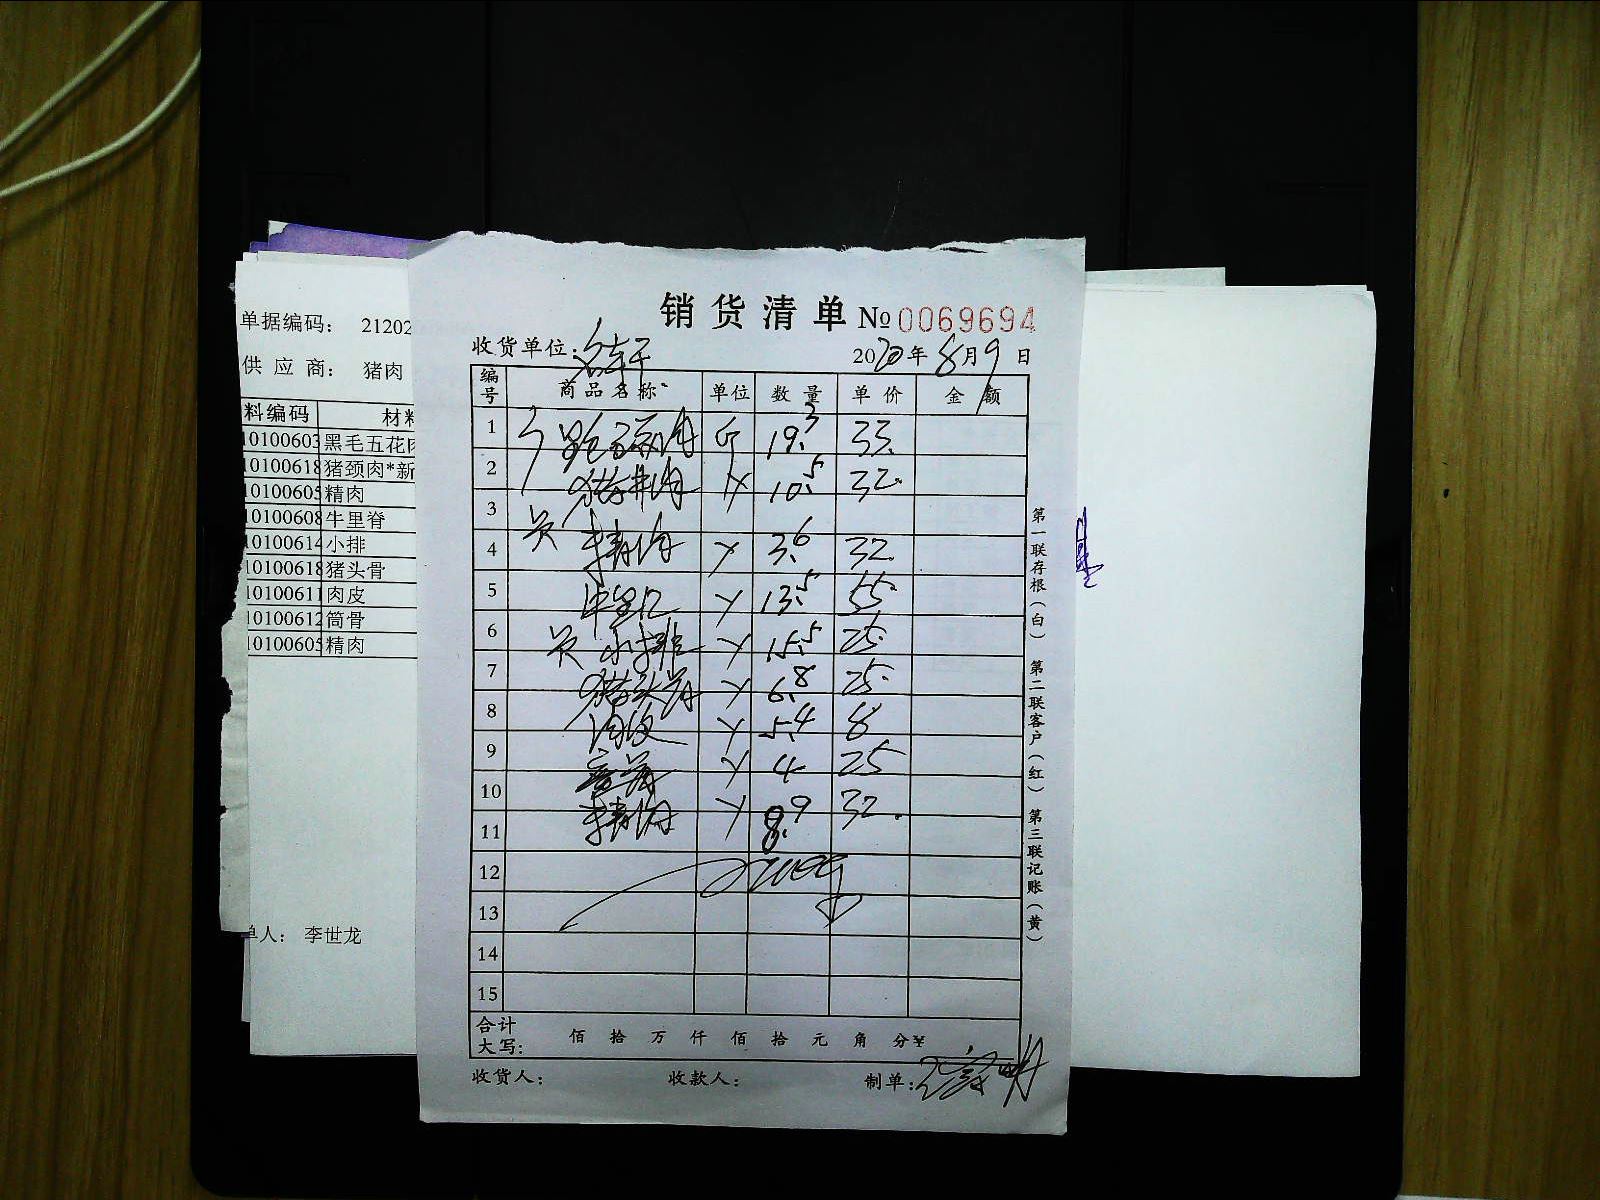 单据编码： 21202
供 应 商： 猪肉
料编码 材料
10100603 黑毛五花肉
10100618 猪颈肉*新
10100605 精肉
10100608 牛里脊
10100614 小排
10100618 猪头骨
10100611 肉皮
10100612 筒骨
10100605 精肉
单人： 李世龙
销 货 清 单 № 0069694
收货单位：
2020年 8月 9日
编号 商品名称 单位 数量 单价 金额
1 19.3 33.
2 10.5 32.
3
4 精肉 3.6 32.
5 13.5 55
6 小排 15.5 25.
7 猪头骨 6.8 25.
8 肉皮 5.4 8
9 4 25
10 精肉 8.9 32.
11
12
13
14
15
合计
大写： 佰 拾 万 仟 佰 拾 元 角 分 ¥
收货人： 收款人： 制单：
第一联存根（白） 第二联客户（红） 第三联记账（黄）